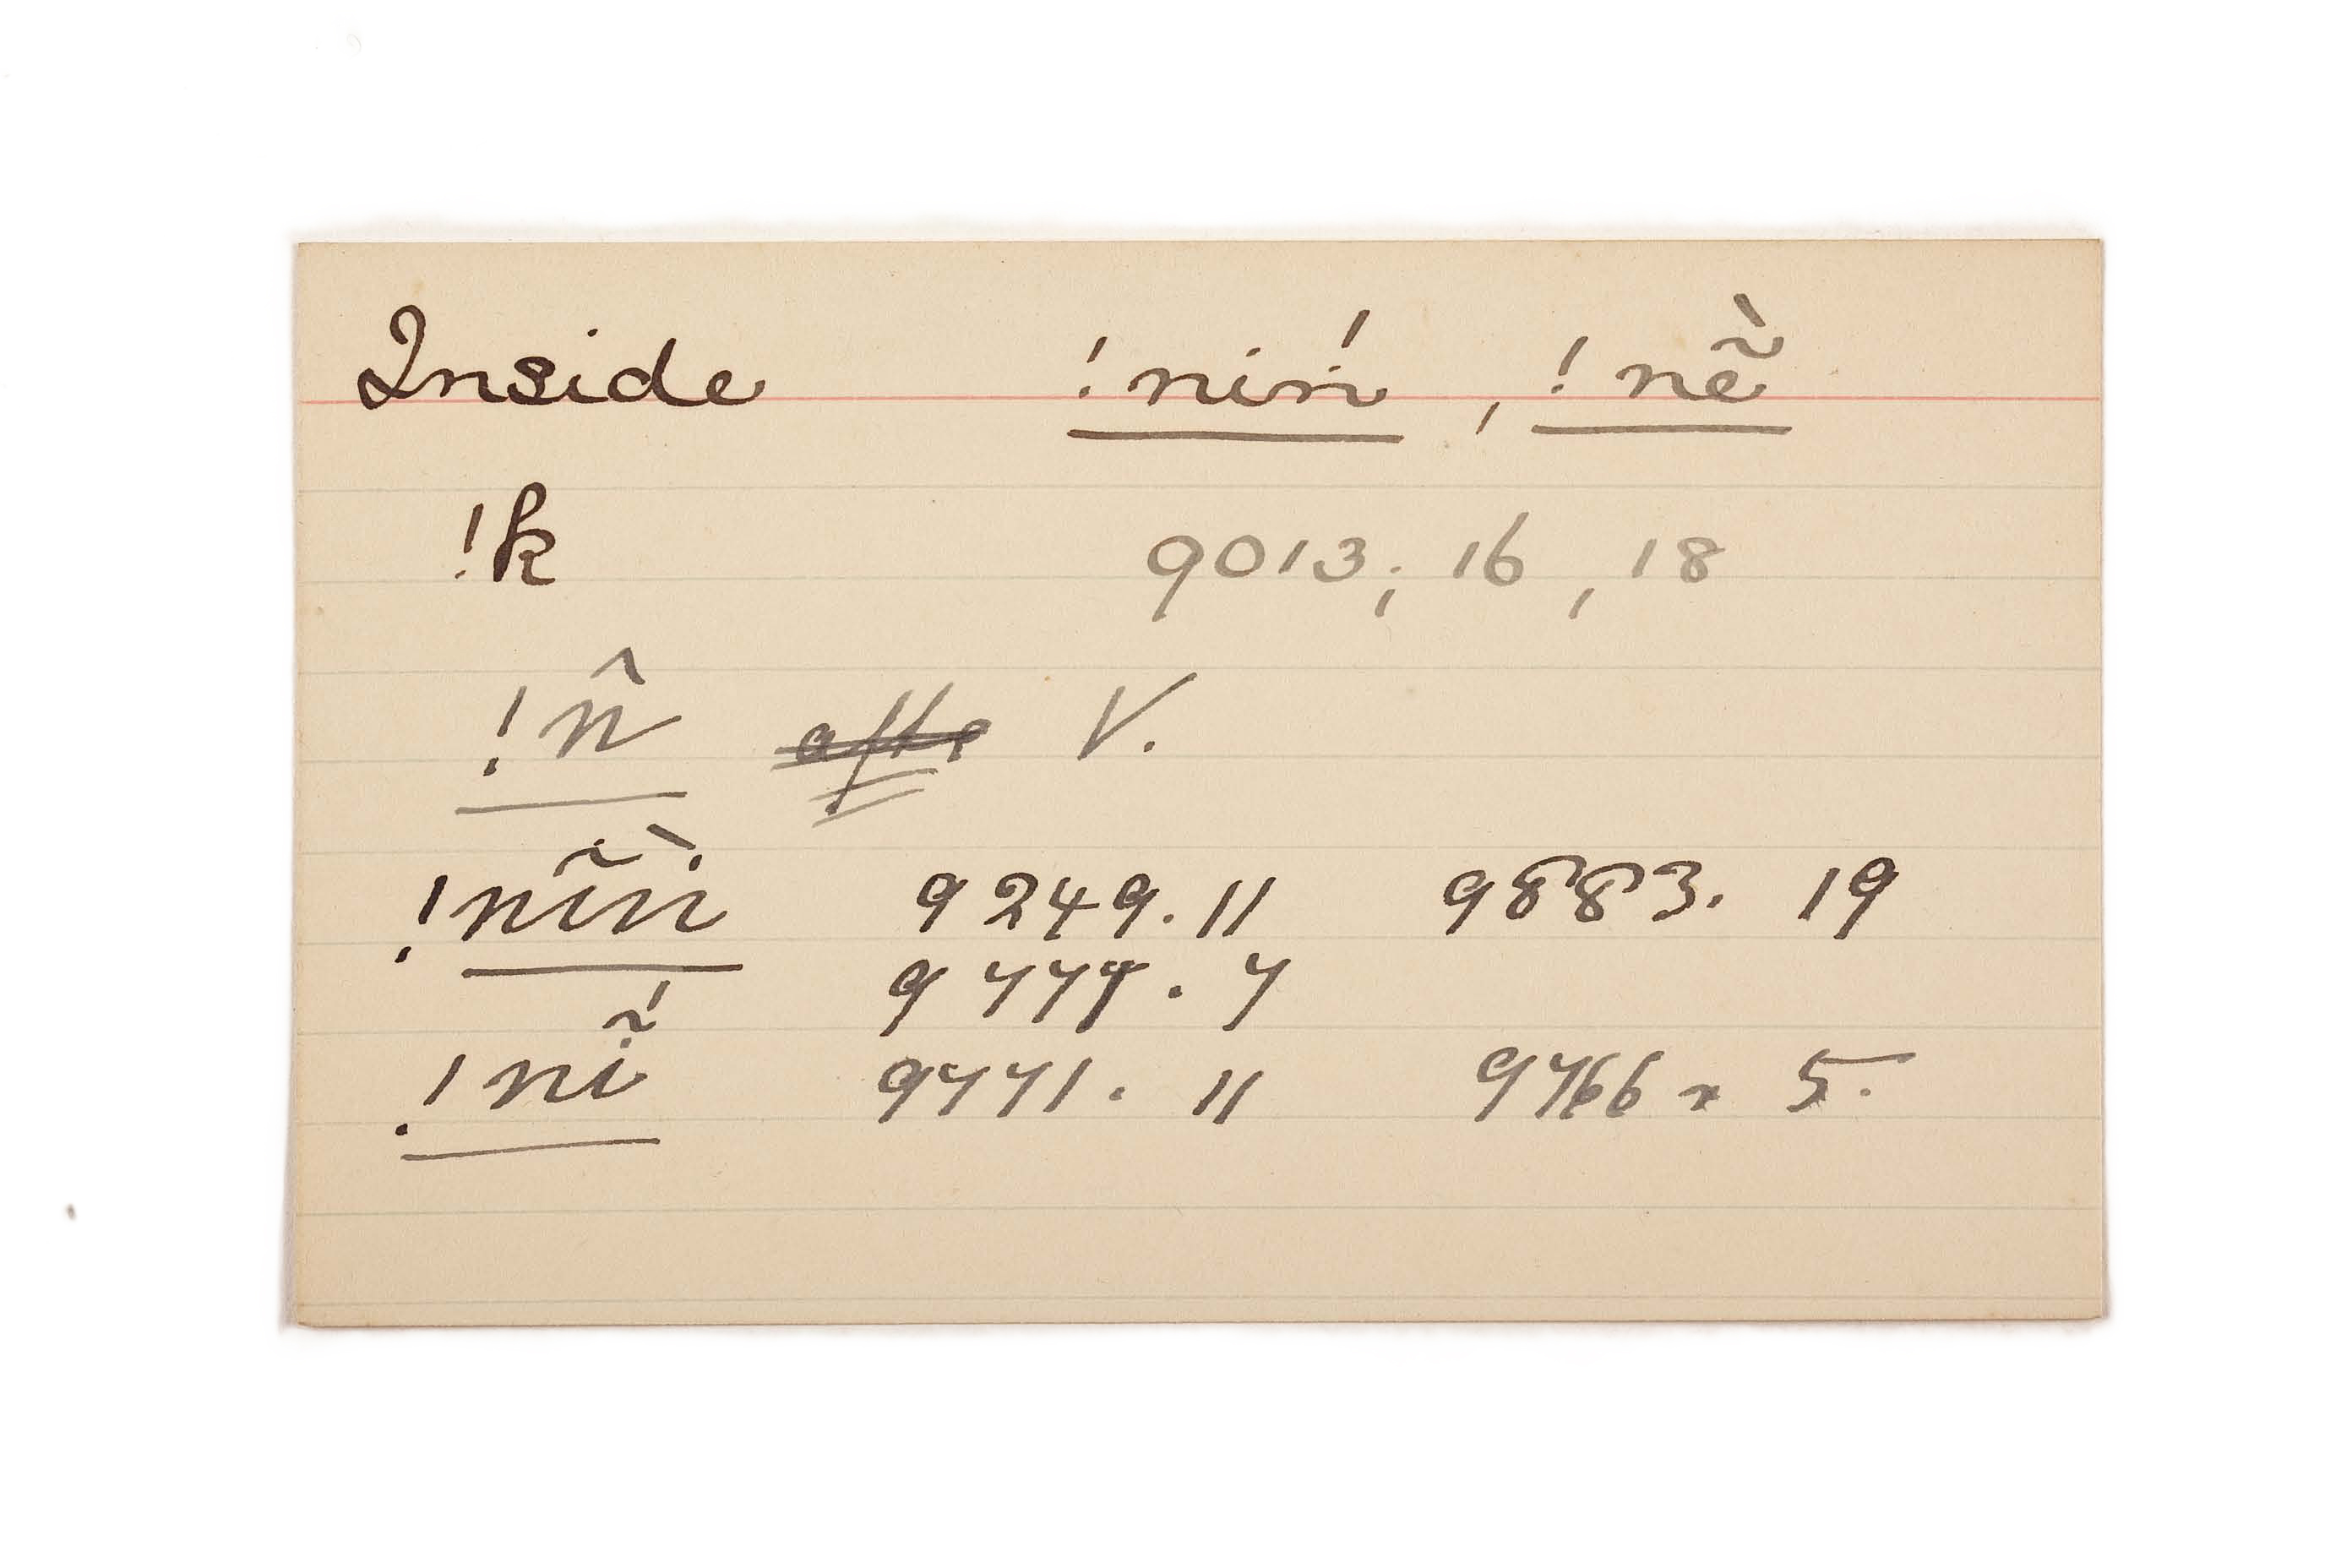 Inside !niń́ , !nẽ̀
!k 9013; 16, 18
!n̂ V.
!nĩǹ 9249.11 9883. 19
9777. 7
!nĩ́ 9771. 11 9766. 5.